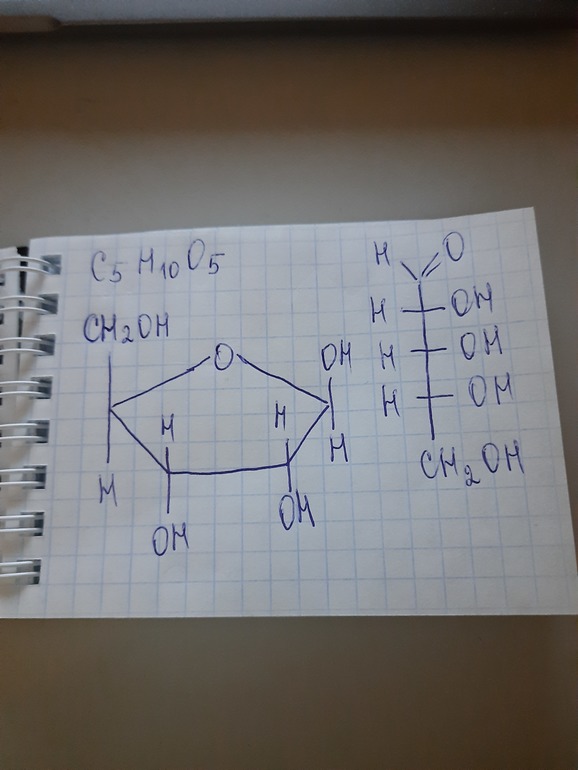 C5H10O5
CH2OH
O
OH
H
H
H
H
OH
OH
H
O
H
OH
H
OH
H
OH
CH2OH